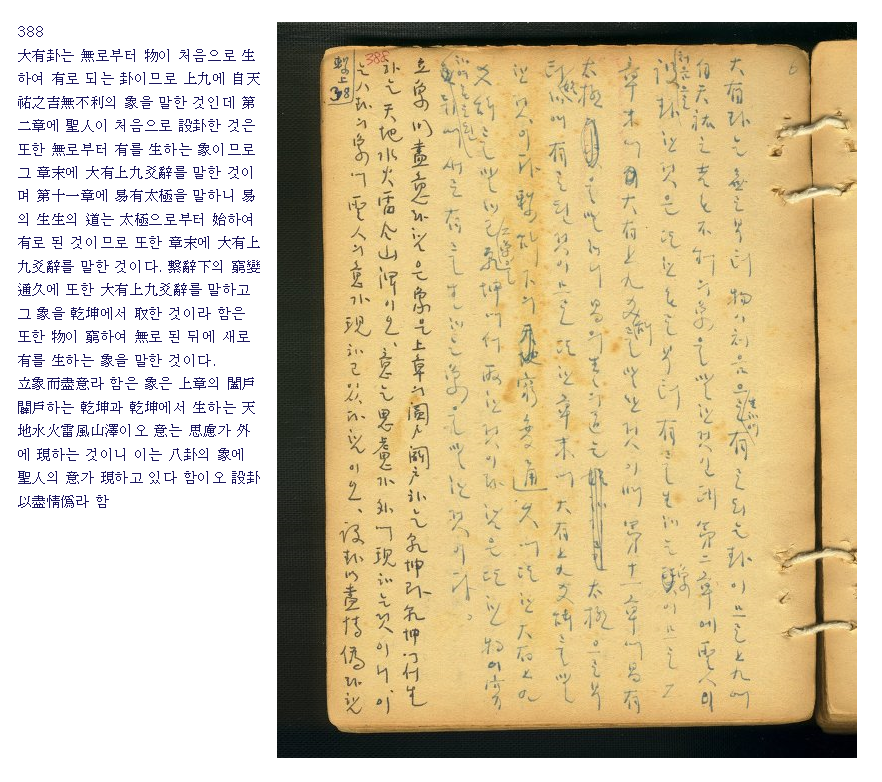 388
大有卦는 無로부터 物이 처음으로 生
하여 有로 되는 卦이므로 上九에 自天
祐之吉無不利의 象을 말한 것인데 第
二章에 聖人이 처음으로 設卦한 것은
또한 無로부터 有를 生하는 象이므로
그 章末에 大有上九爻辭를 말한 것이
며 第十一章에 易有太極을 말하니 易
의 生生의 道는 太極으로부터 始하여
有로 된 것이므로 또한 章末에 大有上
九爻辭를 말한 것이다. 繫辭下의 窮變
通久에 또한 大有上九爻辭를 말하고
그 象을 乾坤에서 取한 것이라 함은
또한 物이 窮하여 無로 된 뒤에 새로
有를 生하는 象을 말한 것이다.
立象而盡意라 함은 象은 上章의 闔戶
闢戶하는 乾坤과 乾坤에서 生하는 天
地水火雷風山澤이오 意는 思慮가 外
에 現하는 것이니 이는 八卦의 象에
聖人의 意가 現하고 있다 함이오 設卦
以盡情僞라 함
大有卦는 無로부터 物이 처음으로 生하여 有로 되는 卦이므로 上九에
自天祐之吉无不利의 象을 말한 것인데 第二章에 聖人이
처음으로 設卦한 것은 또한 無로부터 有를 生하는 象이므로 그
章末에 大有上九爻辭를 말한 것이며 第十一章에 易有
太極을 말하니 易의 生生의 道는 太極으로부
터 始하여 有로 된 것이므로 또한 章末에 大有上九爻辭를 말
한 것이다 繫辭下의 窮變通久에 또한 大有上九
爻辭를 말하고 그 象을 乾坤에서 取한 것이라 함은 또한 物이 窮
하여 無로 된 뒤에 새로 有를 生하는 象을 말한 것이다.
立象而盡意라 함은 象은 上章의 闔戶闢戶하는 乾坤과 乾坤에서 生
하는 天地水火雷風山澤이오, 意는 思慮가 外에 現하는 것이니 이
는 八卦의 象에 聖人의 意가 現하고 있다 함이오, 設卦以盡情僞라 함
388
繫上
38